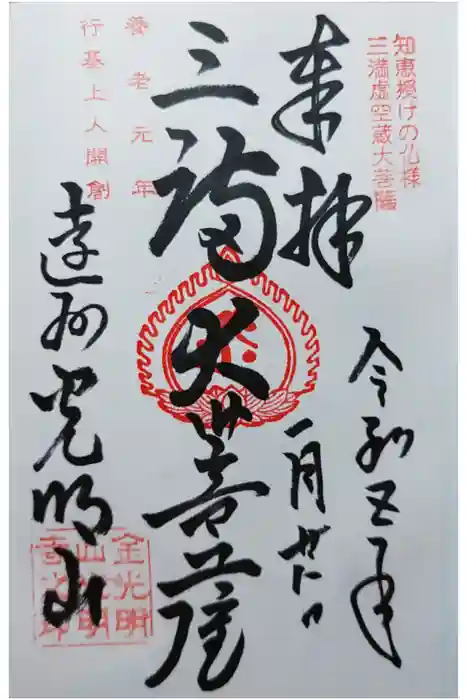 知恵授けの仏様
三満虚空蔵大菩薩
令和五年
奉拝
一月
三満大菩薩
養老元年
行基上人開創
遠州光明山
金光明
山光明
寺之印